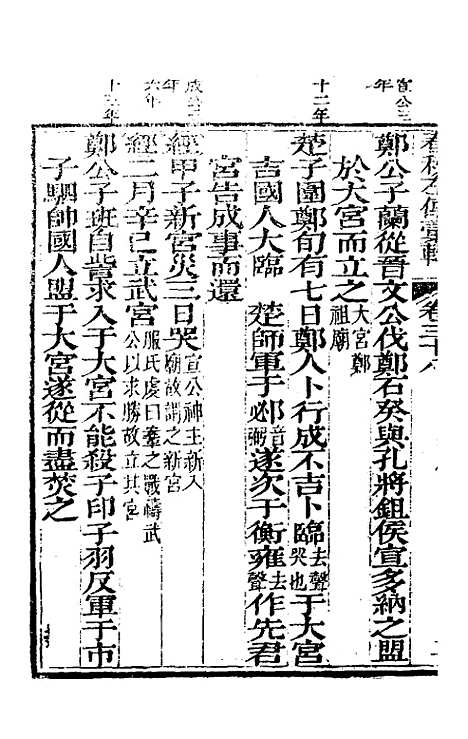 宣公三
年
鄭公子蘭從晉文公伐鄭石癸與孔將鉏侯宣多納之盟
於大宮而立之大宮鄭祖廟
十二年
楚子圍鄭旬有七日鄭人卜行成不吉卜臨去聲哭也于大宮
吉國人大臨 楚師軍于邲音弼遂次于衡雍去聲作先君
宮告成事而還
成公三
年
經甲子新宮災三日哭宣公神主新入廟故謂之新宮
六年
經二月辛巳立武宮服氏虔曰鞌之戰禱武公以求勝故立其宮
十三年
鄭公子班自訾求入于大宮不能殺子印子羽反軍于市
子駟帥國人盟于大宮遂從而盡焚之